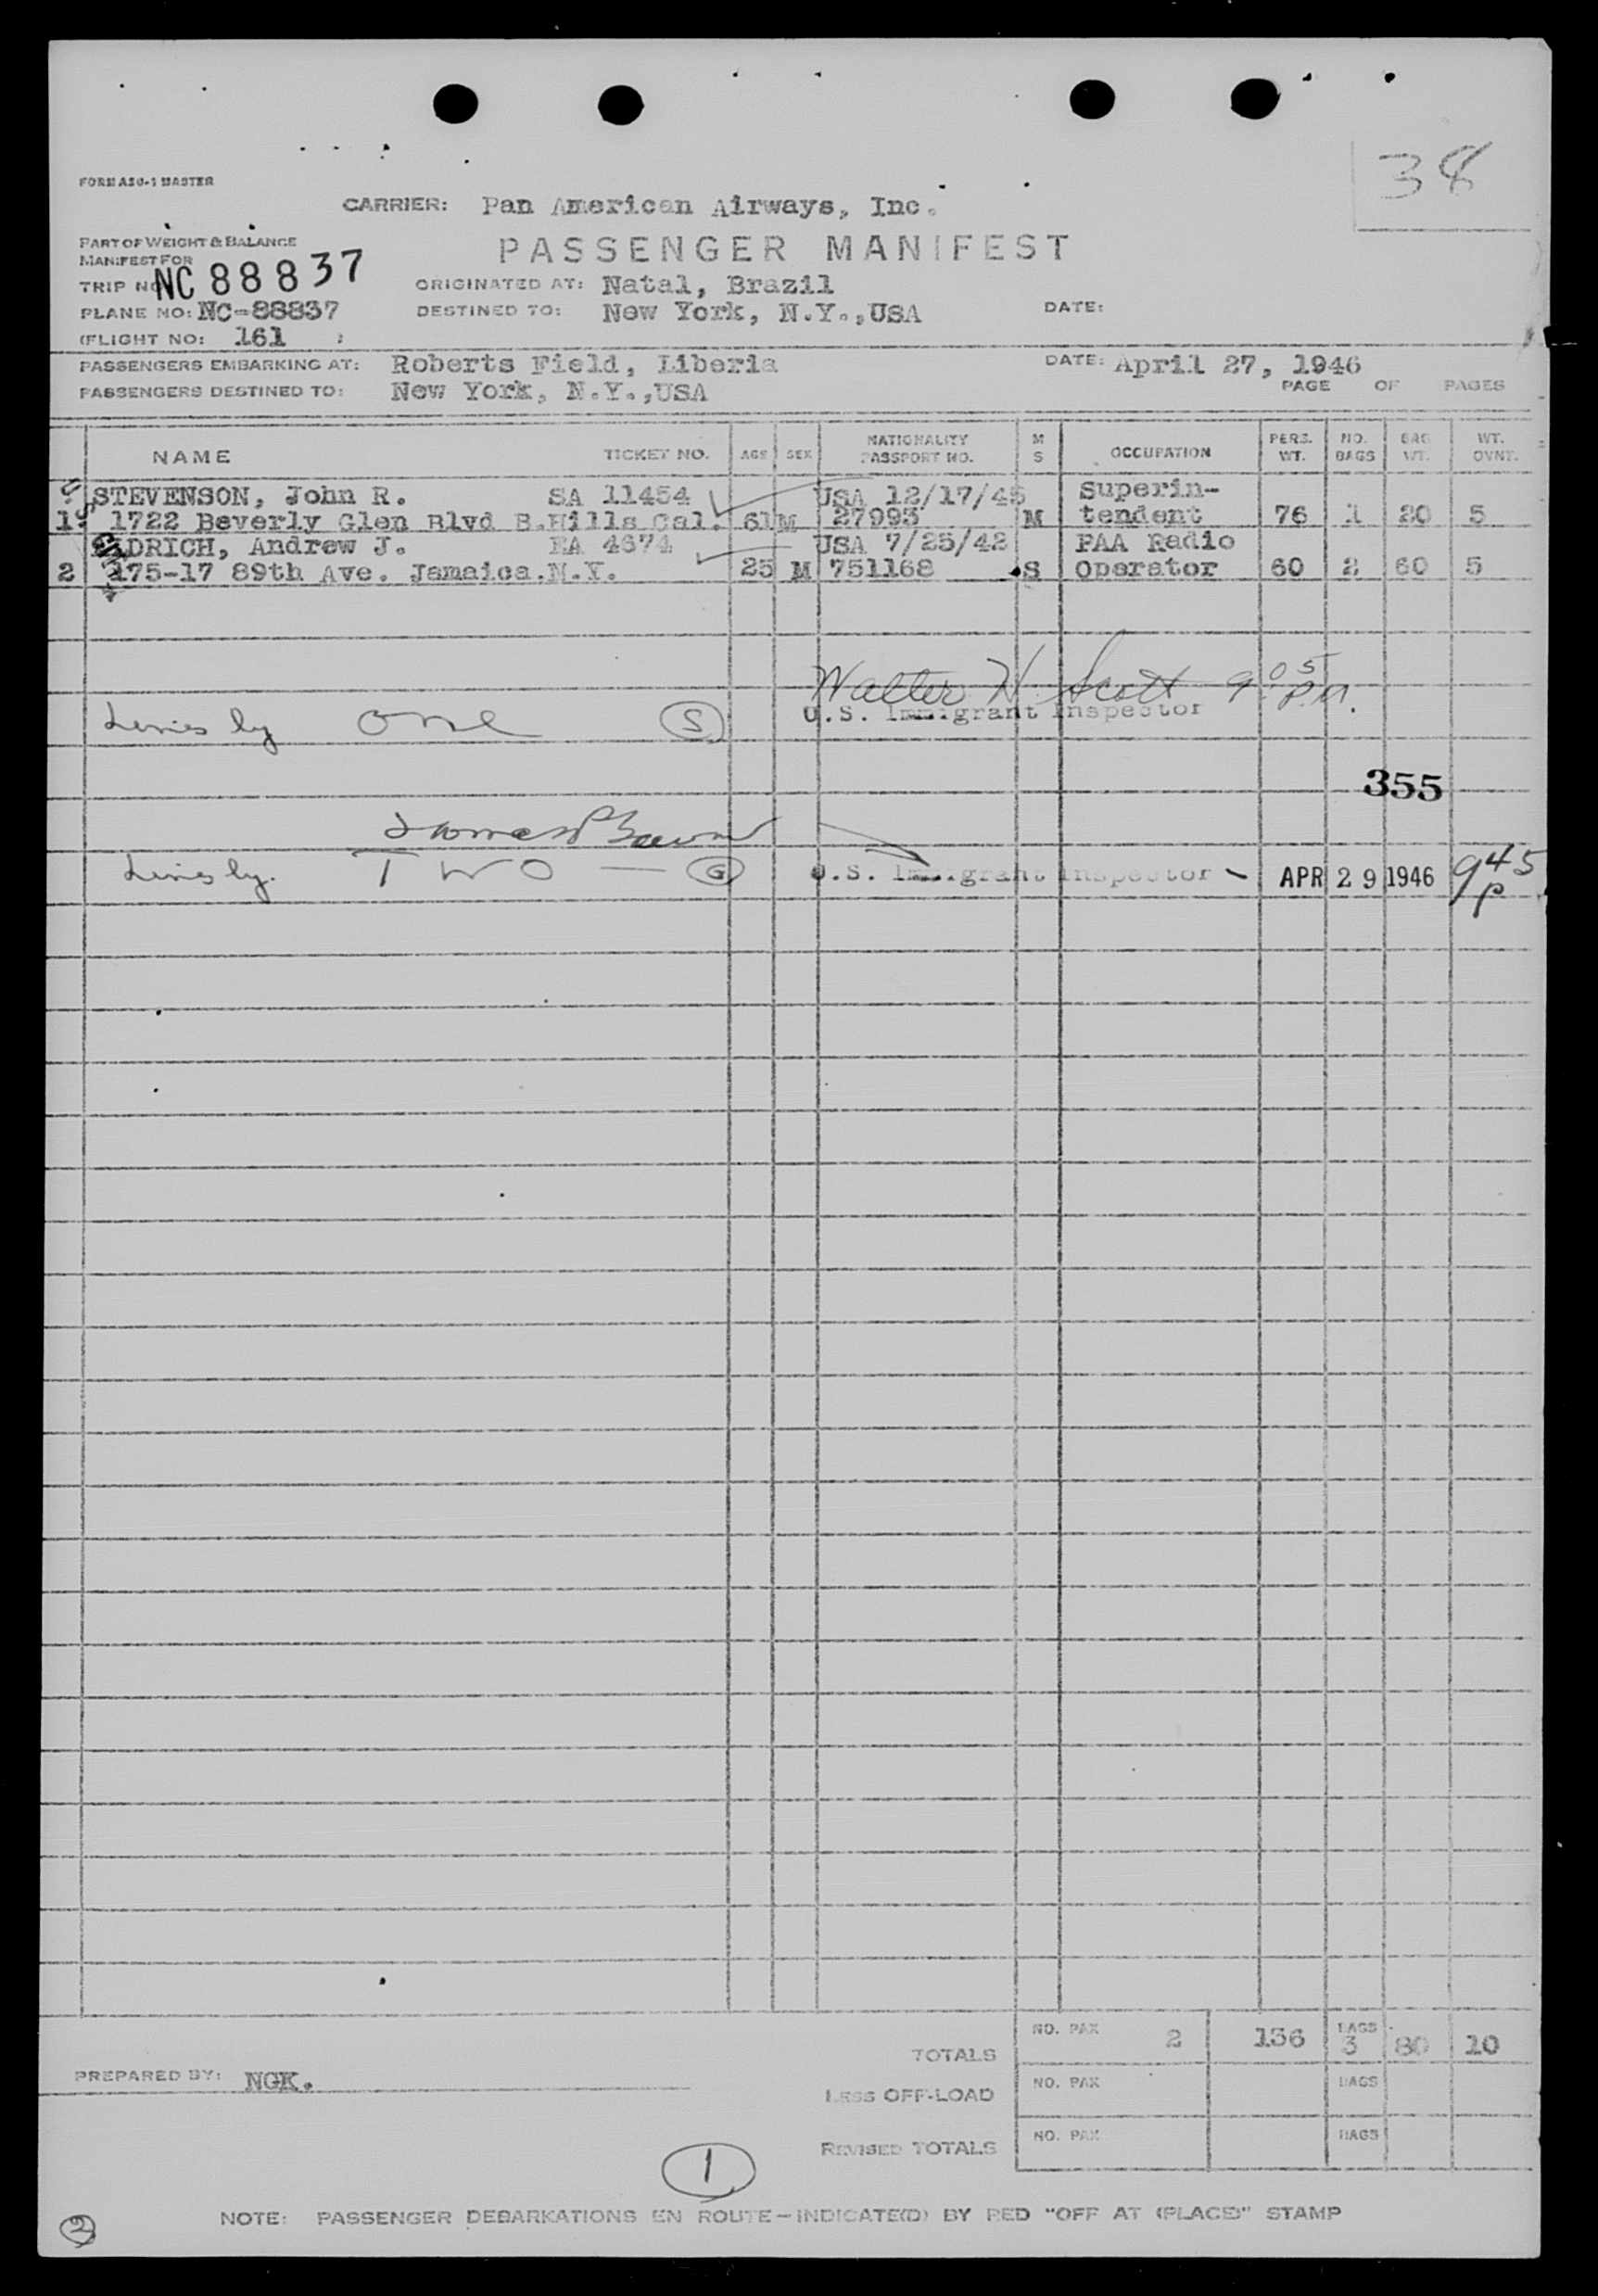 38
FORM ASO-1 MASTER
CARRIER: Pan American Airways, Inc.
PART OF WEIGHT & BALANCE
MANIFEST FOR
PASSENGER MANIFEST
TRIP NO NC 88837
ORIGINATED AT: Natal, Brazil
PLANE NO: NC-88837
DESTINED TO: New York, N.Y.,USA
DATE:
(FLIGHT NO: 161 )
PASSENGERS EMBARKING AT: Roberts Field, Liberia
DATE: April 27, 1946
PASSENGERS DESTINED TO: New York, N.Y.,USA
PAGE OF PAGES
NAME TICKET NO. AGE SEX NATIONALITY PASSPORT NO. M S OCCUPATION PERS. WT. NO. BAGS BAG WT. WT. OVNT.
STEVENSON, John R. SA 11454 USA 12/17/45 Superin-
1 1722 Beverly Glen Blvd B.Hills Cal. 61 M 27993 M tendent 76 1 20 5
ELDRICH, Andrew J. EA 4674 USA 7/25/42 PAA Radio
2 175-17 89th Ave. Jamaica.N.Y. 25 M 751168 S Operator 60 2 60 5
Walter H. Scott 9:05 P.M.
U.S. Immigrant Inspector
one S
355
TWO — G
U.S. Immigrant Inspector - APR 29 1946 9 45 p
TOTALS NO. PAX 2 136 BAGS 3 80 10
PREPARED BY: NGK.
LESS OFF-LOAD NO. PAX BAGS
REVISED TOTALS NO. PAX BAGS
1
2
NOTE: PASSENGER DEBARKATIONS EN ROUTE—INDICATE(D) BY RED "OFF AT (PLACE)" STAMP